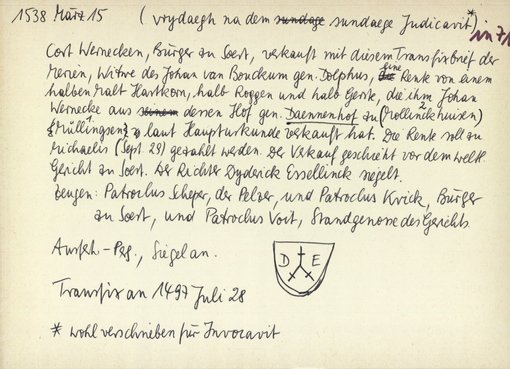 1538 März 15 (vrydaegh na dem sundage sundaege Judicavit*) in 7/1
Cort Wernecken, Bürger zu Soest, verkauft mit diesem Transfixbrief der
Merien, Witwe des Johan van Bouckum gen. Dolphus, eine Rente von einem
halben Malt Hartkorn, halb Roggen und halb Gerste, die ihm Johan
Wernecke aus seinem dessen Hof gen. Daennenhof zu (Mollinckhuisen)
2
{Müllingsen} 1 laut Haupturkunde verkauft hat. Die Rente soll zu
Michaelis (Sept. 29) gezahlt werden. Der Verkauf geschieht vor dem weltl.
Gericht zu Soest. Der Richter Dyderick Essellinck siegelt.
Zeugen: Patroclus Scheper, der Pelzer, und Patroclus Krick, Bürger
zu Soest, und Patroclus Voit, Standgenosse des Gerichts.
Ausfert.-Perg., Siegel an.
D E
Transfix an 1497 Juli 28
* wohl verschrieben für Invocavit